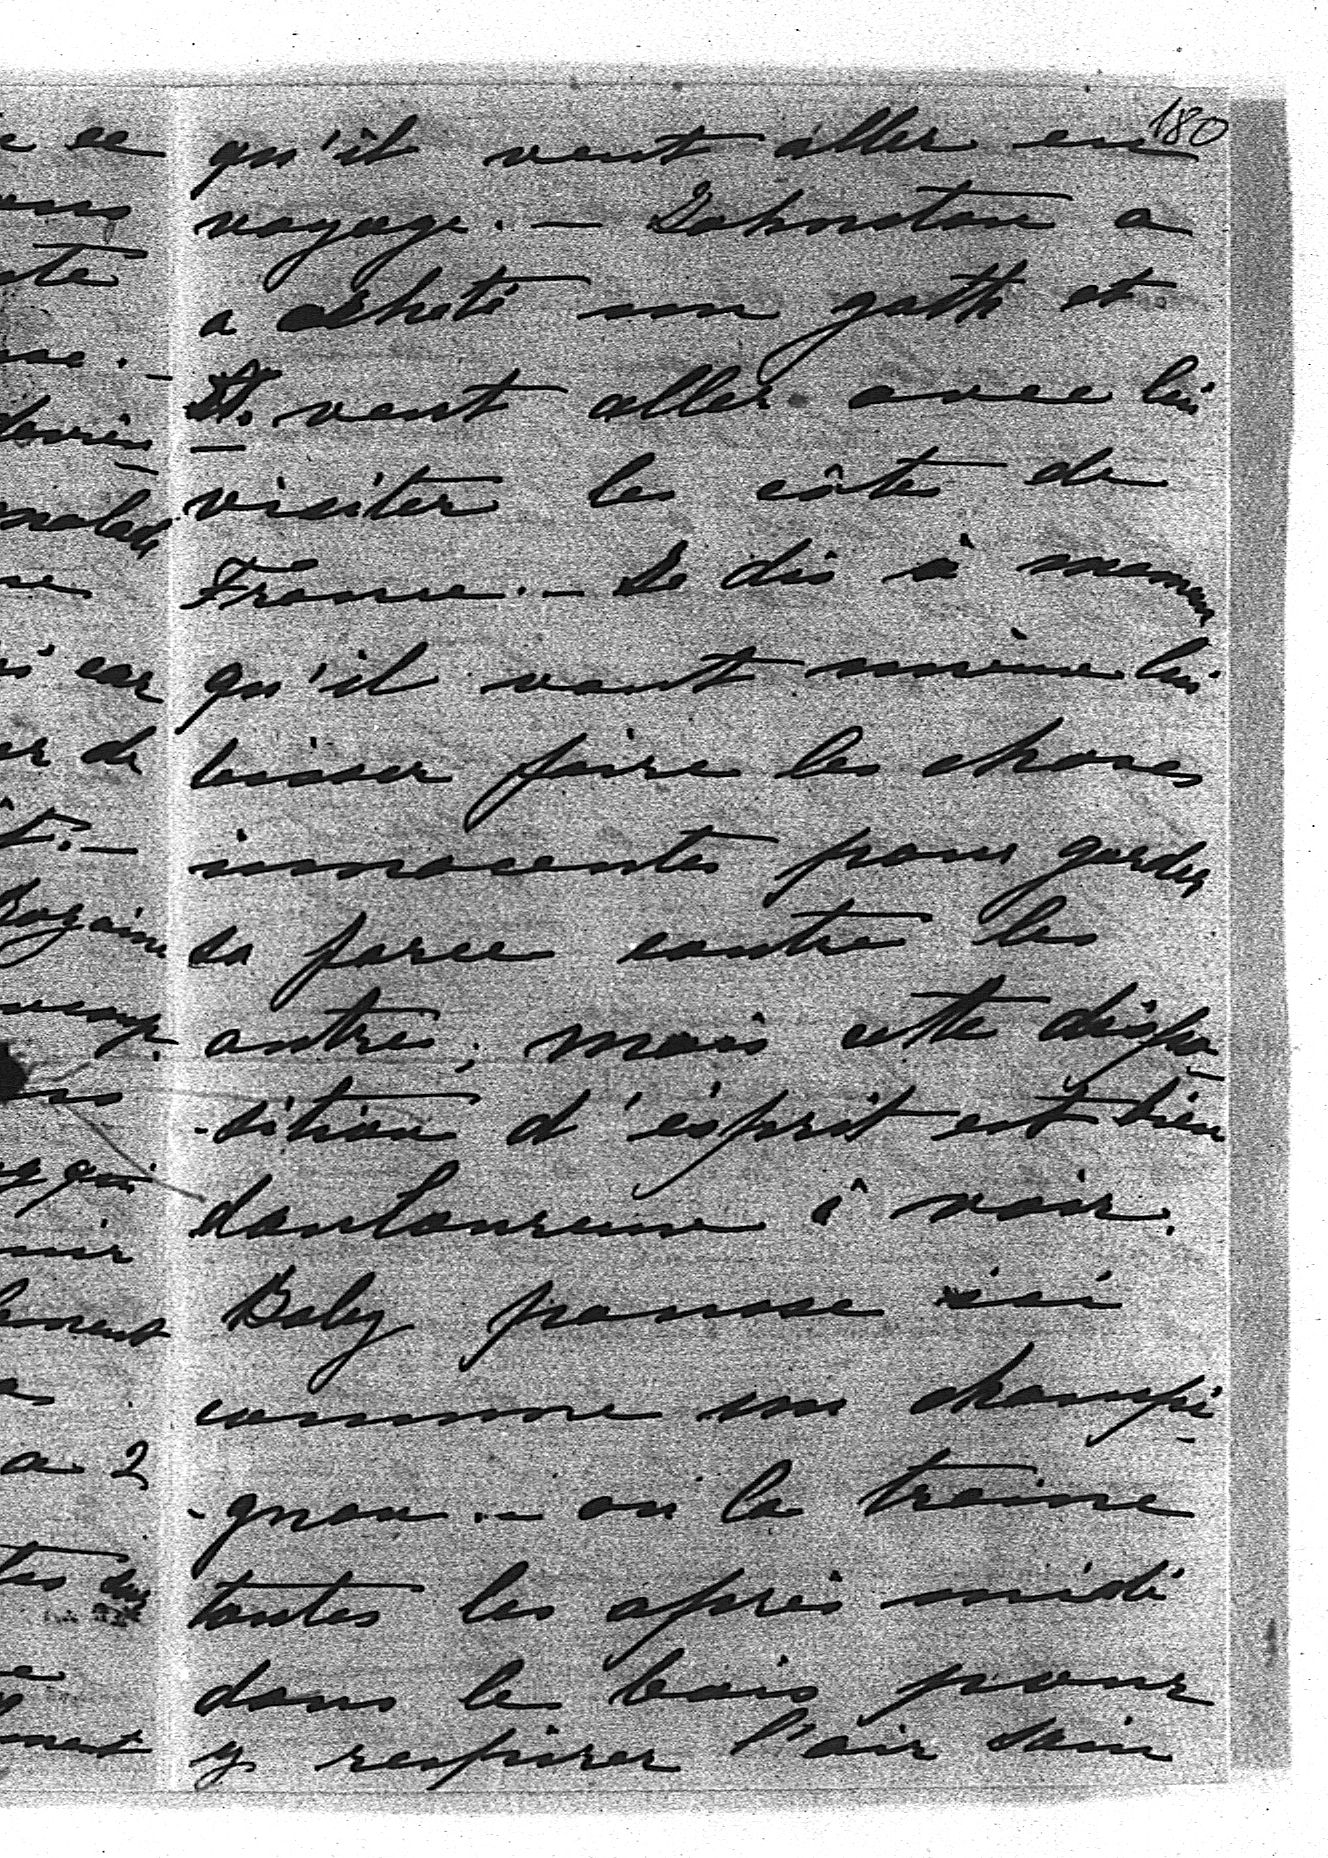 180
qu'il veut aller en
voyage. — Johnston a
a acheté un yatt et
St. veut aller avec lui
visiter les côtes de
France. — Je dis à maman
qu'il vaut mieux lui
laisser faire les choses
innocentes pour garder
sa force contre les
autres, mais cette dispo-
-sition d'ésprit est bien
douloureuse à voir.
Baby pousse ici
comme un champi-
-gnon. — on la traine
toutes les après midi
dans le bois pour
y respirer l'air sain